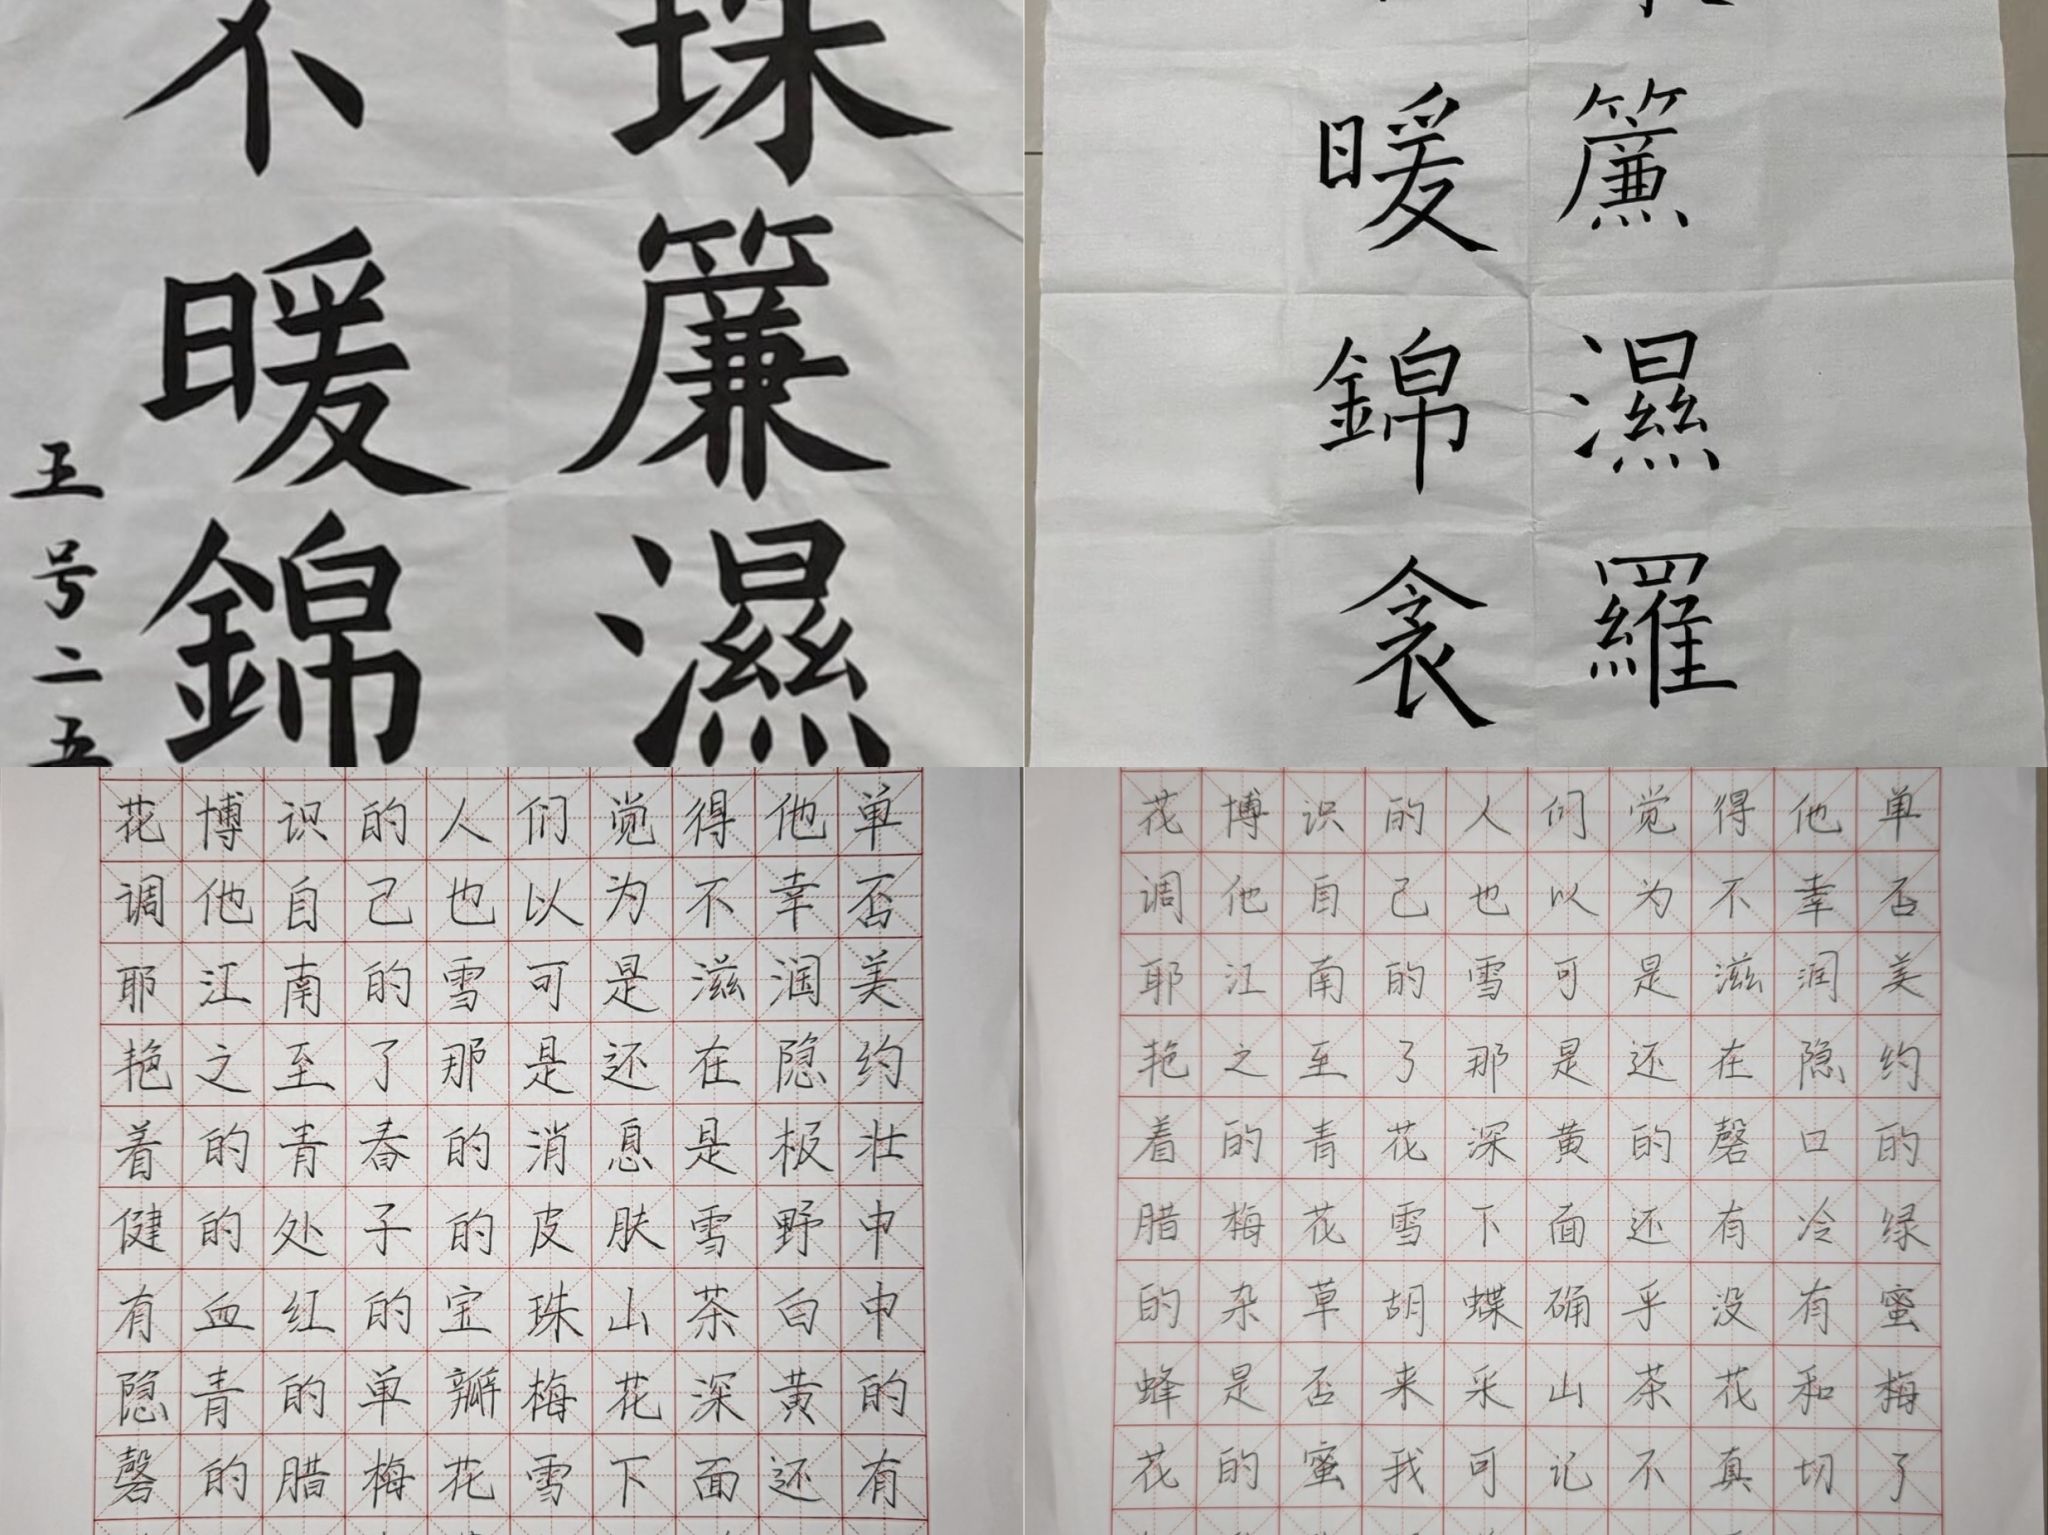 珠簾濕
不暖錦
王号二五
簾濕羅
暖錦衾
花博识的人们觉得他单
调他自己也以为不幸否
耶江南的雪可是滋润美
艳之至了那是还在隐约
着的青春的消息是极壮
健的处子的皮肤雪野中
有血红的宝珠山茶白中
隐青的单瓣梅花深黄的
磬的腊梅花雪下面还有
花博识的人们觉得他单
调他自己也以为不幸否
耶江南的雪可是滋润美
艳之至了那是还在隐约
着的青花深黄的磬口的
腊梅花雪下面还有冷绿
的杂草胡蝶确乎没有蜜
蜂是否来采山茶花和梅
花的蜜我可记不真切了